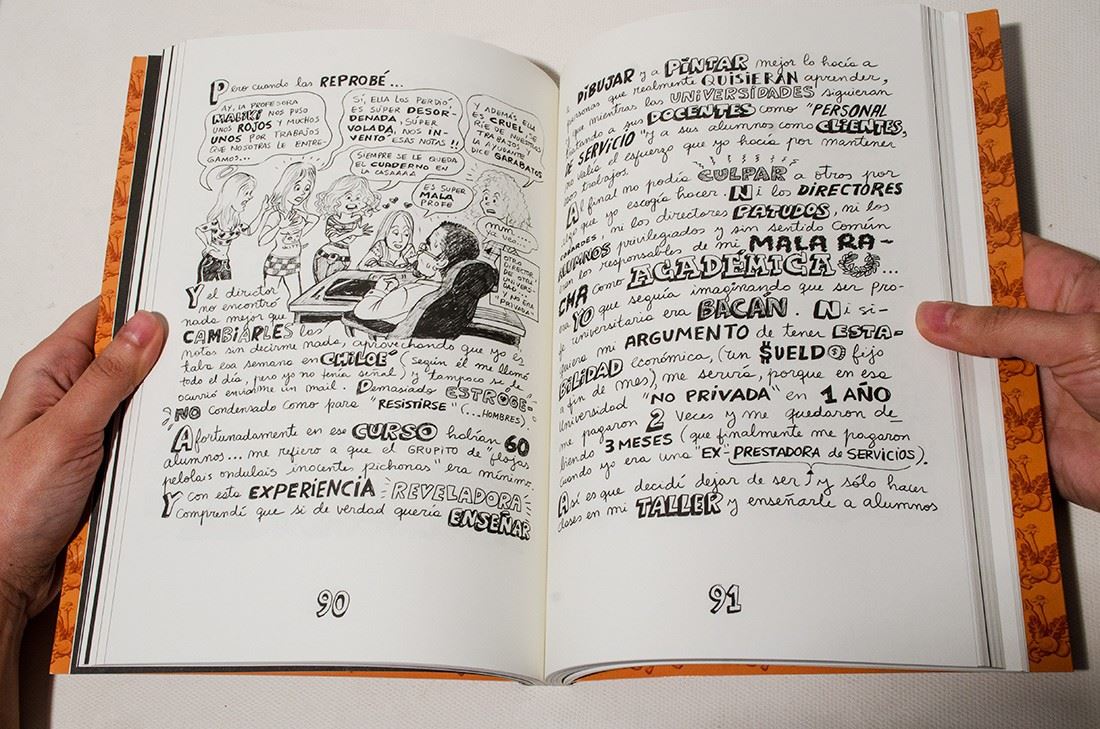 Pero cuando las REPROBÉ...
AY, LA PROFESORA
MALIKI NOS PUSO
UNOS ROJOS Y MUCHOS
UNOS POR TRABAJOS
QUE NOSOTRAS LE ENTRE-
GAMOS...
SÍ, ELLA LOS PERDIÓ,
ES SÚPER DESOR-
DENADA, SÚPER
VOLADA, NOS IN-
VENTÓ ESAS NOTAS!!
Y ADEMÁS ELLA
ES CRUEL SE
RÍE DE NUESTROS
TRABAJOS Y
LA AYUDANTE
DICE GARABATOS
SIEMPRE SE LE QUEDA
EL CUADERNO EN
LA CASAAAA
ES SUPER
MALA
PROFE
MM...
YA VEO...
OTRO
DIRECTOR
DE OTRA
UNIVER-
SIDAD...
Y NO ERA
"PRIVADA"
Y el director
no encontró
nada mejor que
CAMBIARLES las
notas sin decirme nada, aprovechando que yo es-
taba esa semana en CHILOÉ (según el me llamó
todo el día, pero yo no tenía señal) y tampoco se le
ocurrió enviarme un mail. Demasiado ESTRÓGE-
NO condensado como para "RESISTIRSE" (...HOMBRES).
Afortunadamente en ese CURSO habían 60
alumnos... me refiero a que el GRUPITO de "flojas
pelolais ondulais inocentes pichonas" era mínimo.
Y con esta EXPERIENCIA REVELADORA
comprendí que si de verdad quería ENSEÑAR
90
a DIBUJAR y a PINTAR mejor lo hacía a
personas que realmente QUISIERAN aprender,
y que mientras las UNIVERSIDADES siguieran
tratando a sus DOCENTES como "PERSONAL
DE SERVICIO" y a sus alumnos como CLIENTES,
no valía el esfuerzo que yo hacía por mantener
esos trabajos.
Al final no podía CULPAR a otros por
algo que yo escogía hacer. Ni los DIRECTORES
COBARDES, ni los directores PATUDOS, ni los
ALUMNOS privilegiados y sin sentido común
eran los responsables de mi MALA RA-
CHA como ACADÉMICA...
era YO que seguía imaginando que ser pro-
fe universitaria era BACÁN. Ni si-
quiera mi ARGUMENTO de tener ESTA-
BILIDAD económica, (un $UELDO fijo
a fin de mes), me servía, porque en esa
Universidad "NO PRIVADA" en 1 AÑO
me pagaron 2 veces y me quedaron de-
biendo 3 MESES (que finalmente me pagaron
cuando yo era una "EX-PRESTADORA de SERVICIOS).
Así es que decidí dejar de ser y sólo hacer
clases en mi TALLER y enseñarle a alumnos
91